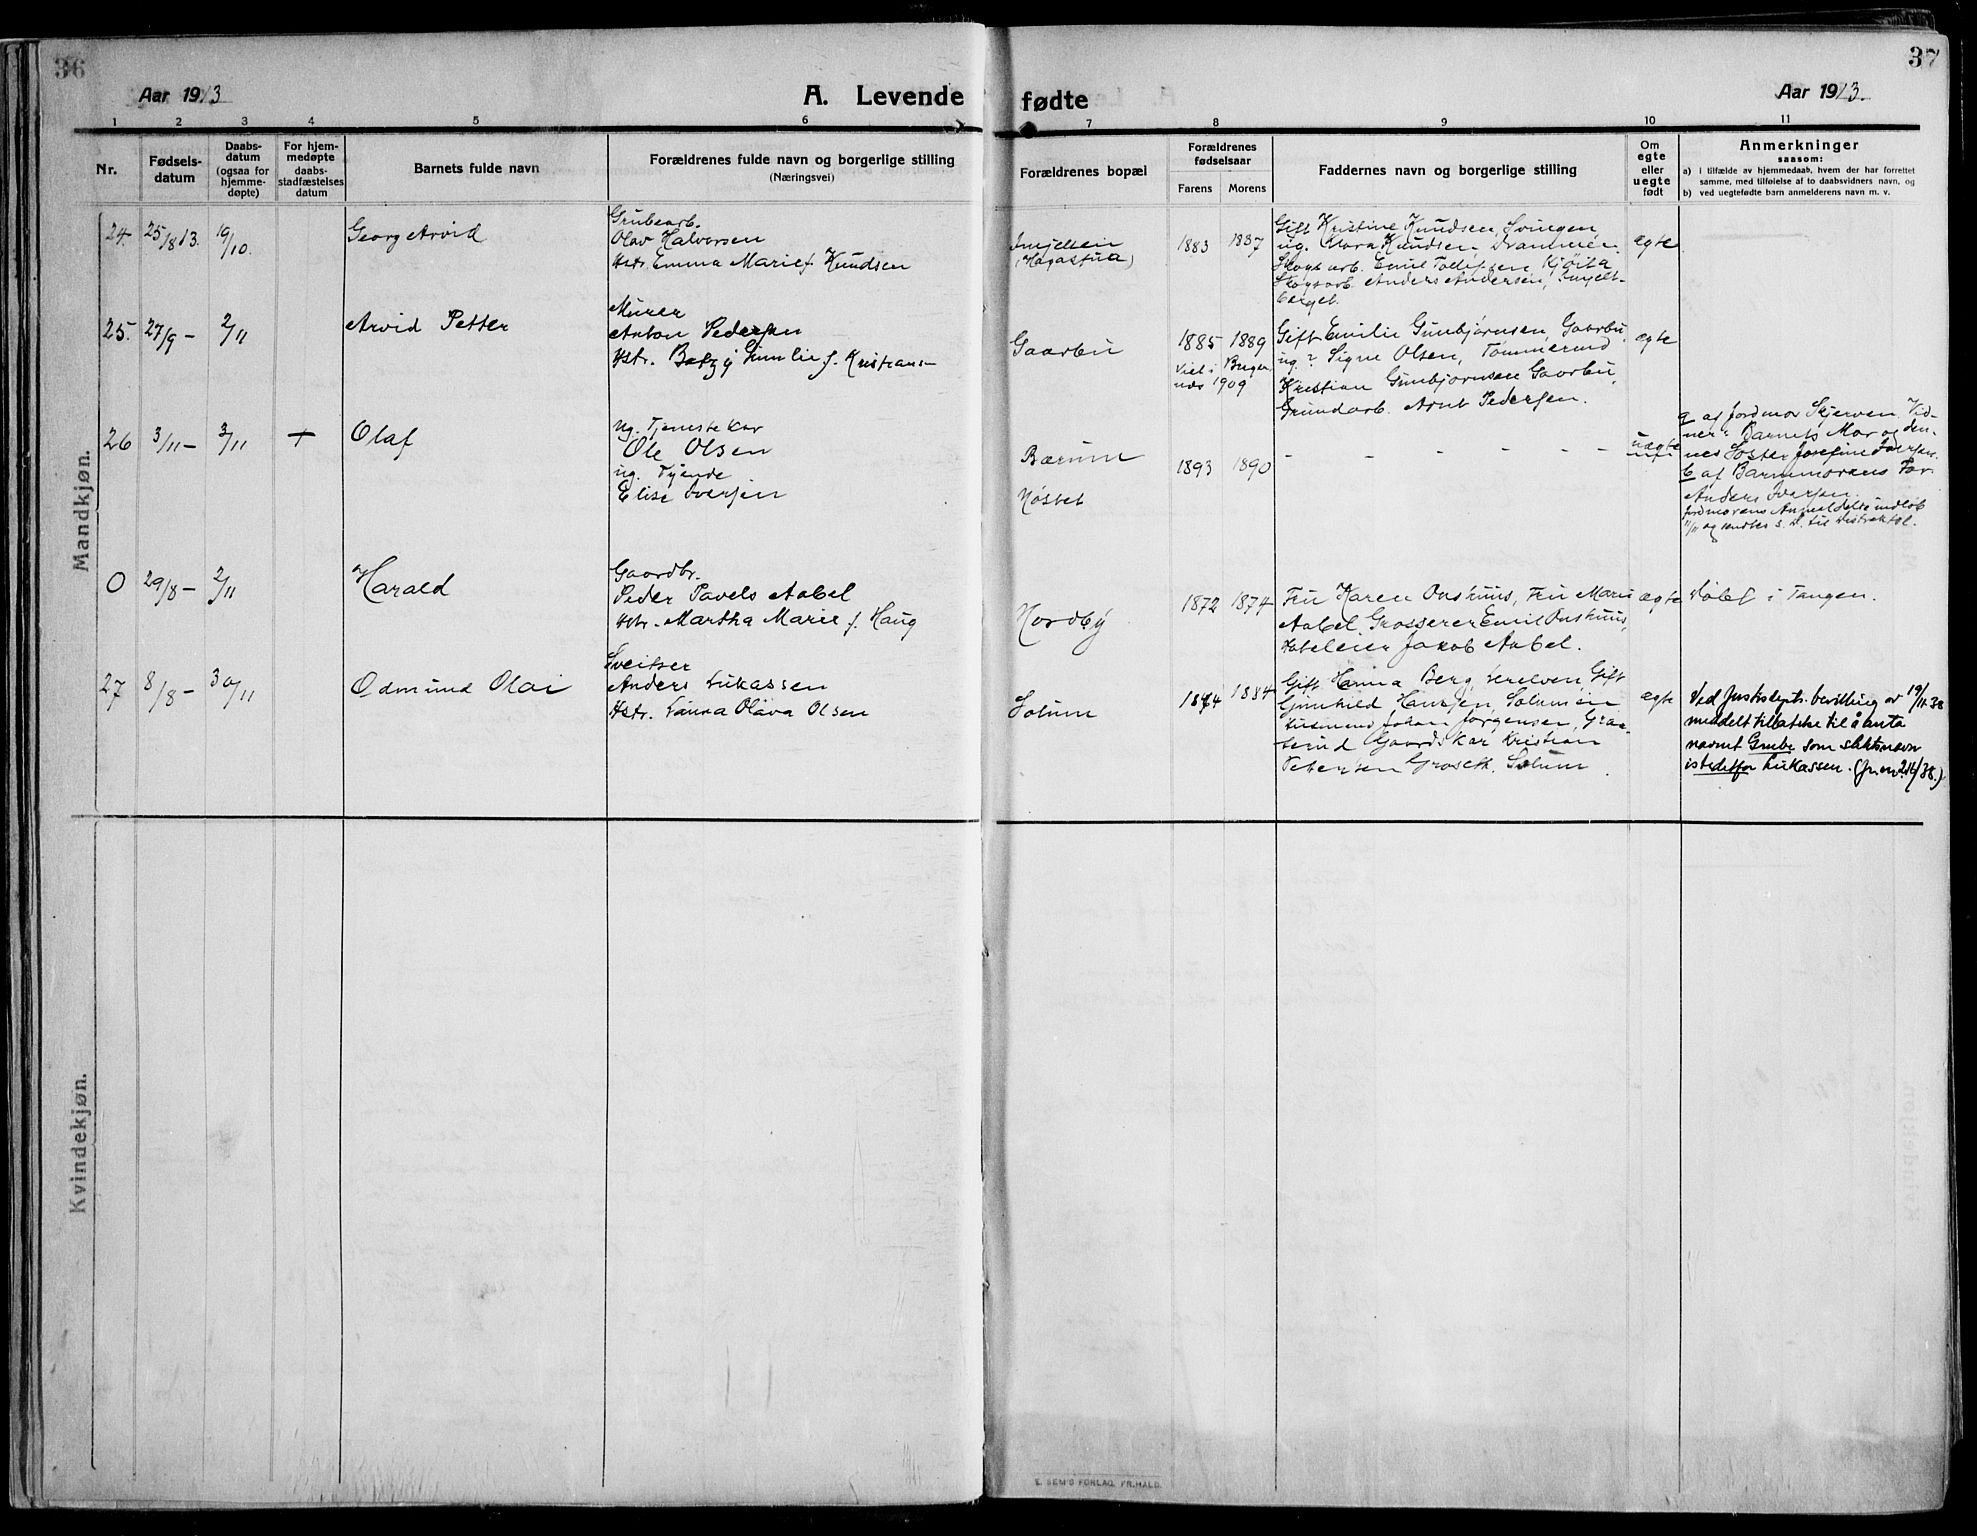 36
Aar 1913
A. Levende
fødte
Aar 1913.
37
1 2 3 4 5 6 7 8 9 10 11
Nr.
Fødsels-
datum
Daabs-
datum
(ogsaa for
hjemme-
døpte)
For hjem-
medøpte
daabs-
stadfæstelses
datum
Barnets fulde navn
Forældrenes fulde navn og borgerlige stilling
(Næringsvei)
Forældrenes bopæl
Forældrenes
fødselsaar
Farens Morens
Faddernes navn og borgerlige stilling
Om
egte
eller
uegte
født
Anmerkninger
saasom:
a) i tilfælde av hjemmedaab, hvem der har forrettet
samme, med tilføielse af to daabsvidners navn, og
b) ved uegtefødte barn anmelderens navn m. v.
Mandkjøn.
24. 25/8 13. 19/10. Georg Arvid
Grubearb.
Olav Halvorsen
Hstr. Emma Marie f. Knudsen
(Hagastua)
1883 1887
Gift Kristine Knudsen, Svingen,
ug. Klara Knudsen, Drammen
Skogsarb. Emil Tollefsen, Kjøita
Skogsarb. Anders Andersen,
berget.
egte
25. 27/9 – 2/11 Arvid Petter
Murer
Anton Pedersen
Hstr. Betzy Emilie f. Kristians–
Gaarbu
1885 1889
Viet i Brager
næs 1909
Gift Emilie Gunbjørnsen, Gaarbu,
ug.? Signe Olsen, Tømmerud
Kristian Gunbjørnsen Gaarbu,
Grundarb. Arnt Pedersen.
egte
26 3/11 – 3/11 + Olaf
Ug. Tjenestekar
Ole Olsen
ug. Tjende
Elise Iversen
Bærum
Nøstet
1893 1890
– – – – – –
uegte
a af Jordmor Skjerven. Vid-
ner: Barnets Mor og den-
nes Søster Josefine Iversen.
b af Barnmorens Far
Anders Iversen.
Jordmorens Anmeldelse indløb
/11 og sendtes s. D. til Distriktsl.
0 29/8 – 2/11 Harald
Gaardbr.
Peder Pavels Aabel
Hstr. Martha Marie f. Haug
Nordby
1872 1874
Fru Karen Onshuus, Fru Marie
Aabel, Grosserer Emil Onshuus,
Jakob Aabel.
egte
Døbt i Tangen.
27 8/8 – 30/11 Odmund Olai
Sveitser
Anders Lukassen
Hstr. Laura Olava Olsen
Solum
1874 1884
Gift Hanna Berg, Gift
Gunhild Hansen, Solum
Husmand Johan Jørgensen, Graa-
Gaardskar Kristian
Petersen Groseth, Solum
egte
Ved Justisdepts. bevilling av 19/11.38
meddelt tillatelse til å anta
navnet Grube som slektsnavn
istedetfor Lukassen. (Jr. nr. 216/38.)
Kvindekjøn.
E. SEM'S FORLAG. FR.HALD.